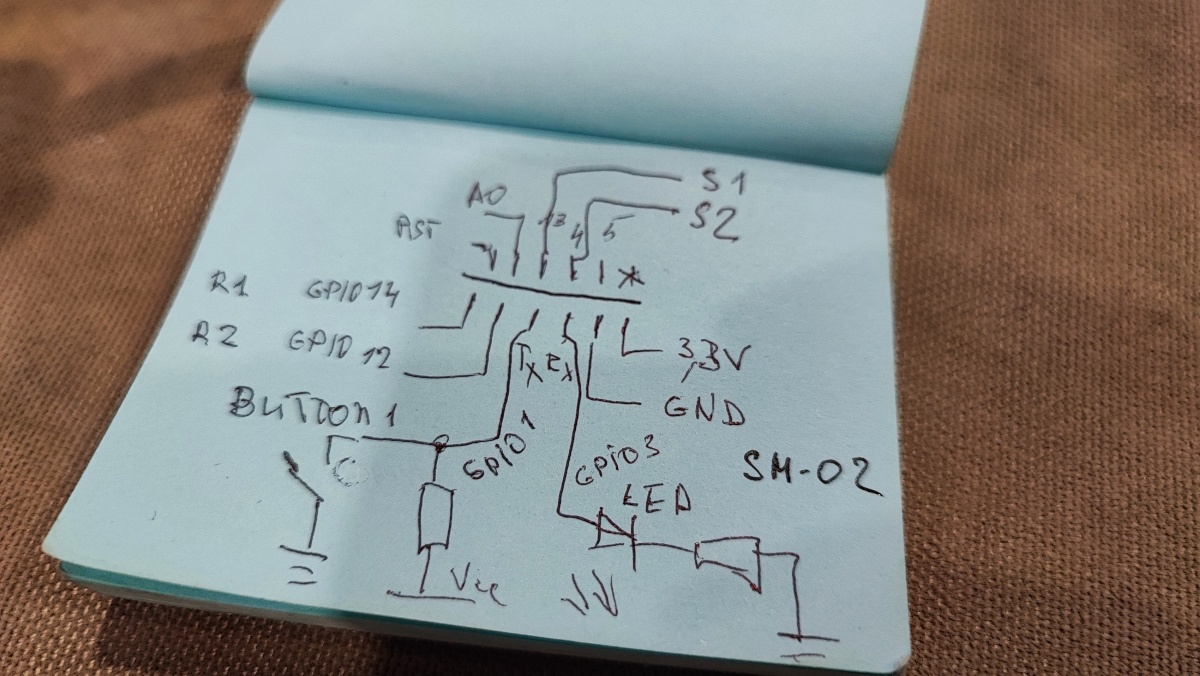 S1
A0 13 4 5 S2
RST
R1 GPIO14
R2 GPIO12
Tx Rx 3,3V
BUTTON1 GND
GPIO1 GPIO3 SM-02
LED
Vcc